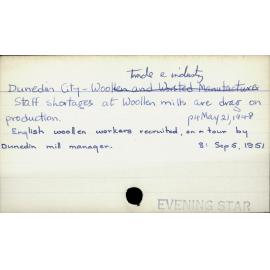 Trade & industry
Dunedin City - Woollen and Worsted Manufacturer
Staff shortages at Woollen mills are drag on
production. p4 May 21, 1948
English woollen workers recruited, on tour by
Dunedin mill manager. 8: Sep 5, 1951
EVENING STAR